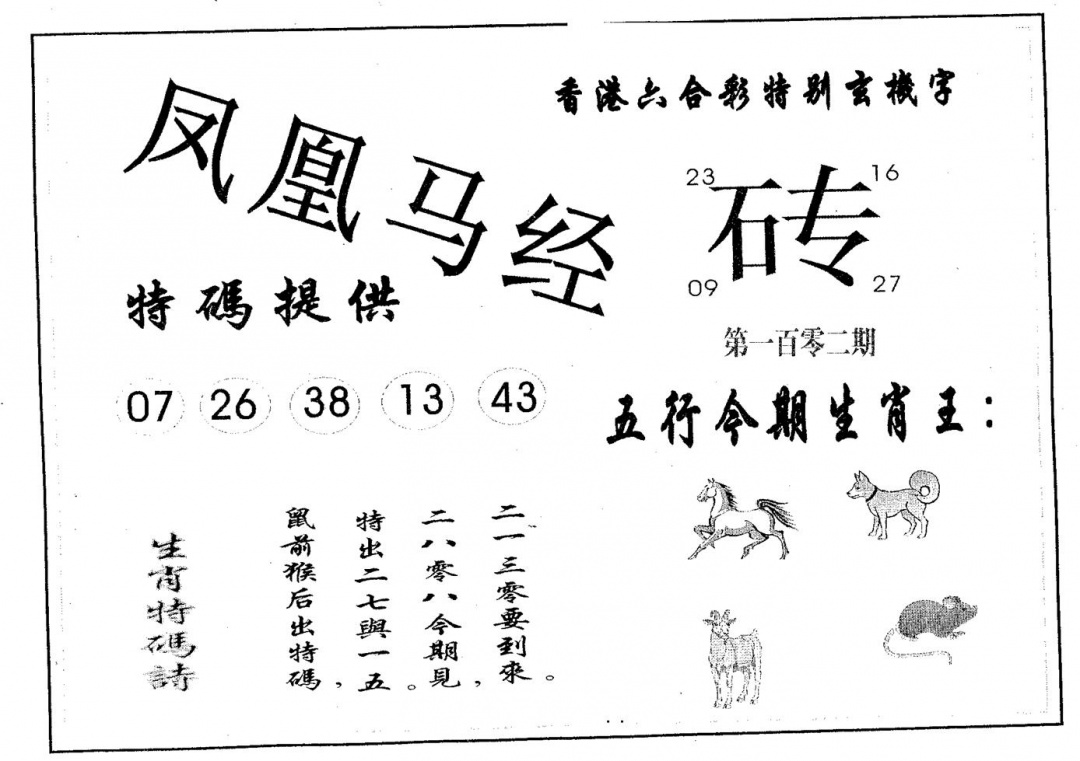 凤凰马经
香港六合彩特别玄機字
23 16
砖
09 27
特碼提供
第一百零二期
07 26 38 13 43
五行今期生肖王：
生肖特碼詩
鼠前猴后出特碼，
特出二七與一五。
二八零八今期見，
二一三零要到來。